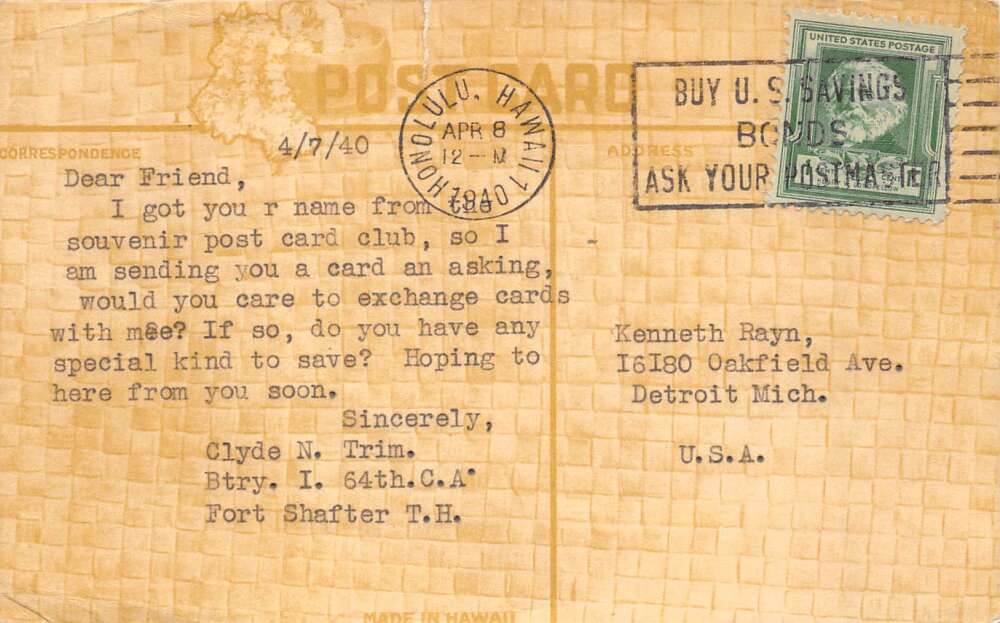 POST CARD
CORRESPONDENCE
ADDRESS
HONOLULU, HAWAII
APR 8
12 – M
1940
BUY U. S. SAVINGS
BONDS
ASK YOUR POSTMASTER
UNITED STATES POSTAGE
4/7/40
Dear Friend,
I got you r name from the
souvenir post card club, so I
am sending you a card an asking,
would you care to exchange cards
with mee? If so, do you have any
special kind to save? Hoping to
here from you soon.
Sincerely,
Clyde N. Trim.
Btry. I. 64th.C.A.
Fort Shafter T.H.
Kenneth Rayn,
16180 Oakfield Ave.
Detroit Mich.
U.S.A.
MADE IN HAWAII